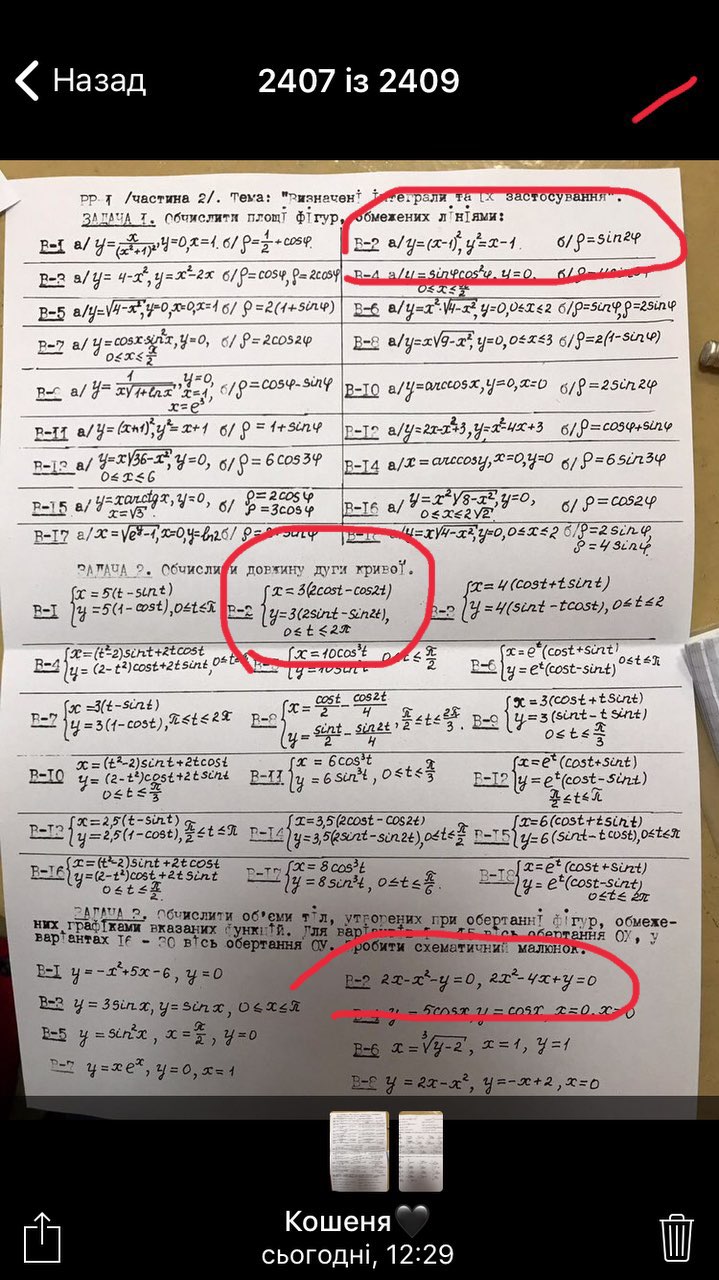 Назад
2407 із 2409
РР-1 /частина 2/. Тема: "Визначені інтеграли та їх застосування".
ЗАДАЧА I. Обчислити площі фігур, обмежених лініями:
В-1 а/ y=x/(x²+1)², y=0, x=1. б/ ρ=1/2+cosφ.
В-2 а/ y=(x-1)², y²=x-1. б/ ρ=sin2φ
В-3 а/ y= 4-x², y=x²-2x б/ ρ=cosφ, ρ=2cosφ
В-4 а/ y=sinφcos²φ, y=0,
В-5 а/ y=√4-x², y=0, x=0, x=1 б/ ρ=2(1+sinφ)
В-6 а/ y=x²·√4-x², y=0, 0≤x≤2 б/ ρ=sinφ, ρ=2sinφ
В-7 а/ y=cosx sin²x, y=0, б/ ρ=2cos2φ
0≤x≤π/2
В-8 а/ y=x√9-x², y=0, 0≤x≤3 б/ ρ=2(1-sinφ)
а/ y=1/(x√1+lnx), y=0, x=1, x=e³ б/ ρ=cosφ-sinφ
В-10 а/ y=arccosx, y=0, x=0 б/ ρ=2sin2φ
В-11 а/ y=(x+1)², y²=x+1 б/ ρ=1+sinφ
В-12 а/ y=2x-x²+3, y=x²-4x+3 б/ ρ=cosφ+sinφ
В-13 а/ y=x√36-x², y=0, б/ ρ=6cos3φ
0≤x≤6
В-14 а/ x=arccosy, x=0, y=0 б/ ρ=6sin3φ
В-15 а/ y=xarctgx, y=0, б/ ρ=2cosφ
x=√3 ρ=3cosφ
В-16 а/ y=x²√8-x², y=0, б/ ρ=cos2φ
0≤x≤2√2
В-17 а/ x=√e^y-1, x=0, y=ln2 б/
а/ y=x√4-x², y=0, 0≤x≤2 б/ ρ=2sinφ,
ρ=4sinφ
ЗАДАЧА 2. Обчислити довжину дуги кривої.
В-1 {x=5(t-sint)
y=5(1-cost), 0≤t≤π
В-2 {x=3(2cost-cos2t)
y=3(2sint-sin2t),
0≤t≤2π
В-3 {x=4(cost+tsint)
y=4(sint-tcost), 0≤t≤2
В-4 {x=(t²-2)sint+2tcost
y=(2-t²)cost+2tsint,
{x=10cos³t
y=10sin³t 0≤t≤π/2
В-6 {x=e^t(cost+sint)
y=e^t(cost-sint) 0≤t≤π
В-7 {x=3(t-sint)
y=3(1-cost), π≤t≤2π
В-8 {x=cost/2-cos2t/4
y=sint/2-sin2t/4, π/2≤t≤2π/3.
В-9 {x=3(cost+tsint)
y=3(sint-tsint)
0≤t≤π/3
В-10 x=(t²-2)sint+2tcost
y=(2-t²)cost+2tsint
0≤t≤π/3
В-11 {x=6cos³t
y=6sin³t, 0≤t≤π/3
В-12 {x=e^t(cost+sint)
y=e^t(cost-sint)
π/2≤t≤π
В-13 {x=2,5(t-sint)
y=2,5(1-cost), π/2≤t≤π
В-14 {x=3,5(2cost-cos2t)
y=3,5(2sint-sin2t), 0≤t≤π/2
В-15 {x=6(cost+tsint)
y=6(sint-tcost), 0≤t≤π
В-16 {x=(t²-2)sint+2tcost
y=(2-t²)cost+2tsint
0≤t≤π/2.
В-17 {x=8cos³t
y=8sin³t, 0≤t≤π/6.
В-18 {x=e^t(cost+sint)
y=e^t(cost-sint)
0≤t≤2π
ЗАДАЧА 3. Обчислити об'єми тіл, утворених при обертанні фігур, обмеже-
них графіками вказаних функцій. Для варіантів 15 вісь обертання ОХ, у
варіантах 16 - 30 вісь обертання ОУ. Зробити схематичний малюнок.
В-1 y=-x²+5x-6, y=0
В-2 2x-x²-y=0, 2x²-4x+y=0
В-3 y=3sinx, y=sinx, 0≤x≤π
y=5cosx, y=cosx, x=0,
В-5 y=sin²x, x=π/2, y=0
В-6 x=∛y-2, x=1, y=1
В-7 y=xe^x, y=0, x=1
В-8 y=2x-x², y=-x+2, x=0
Кошеня🖤
сьогодні, 12:29